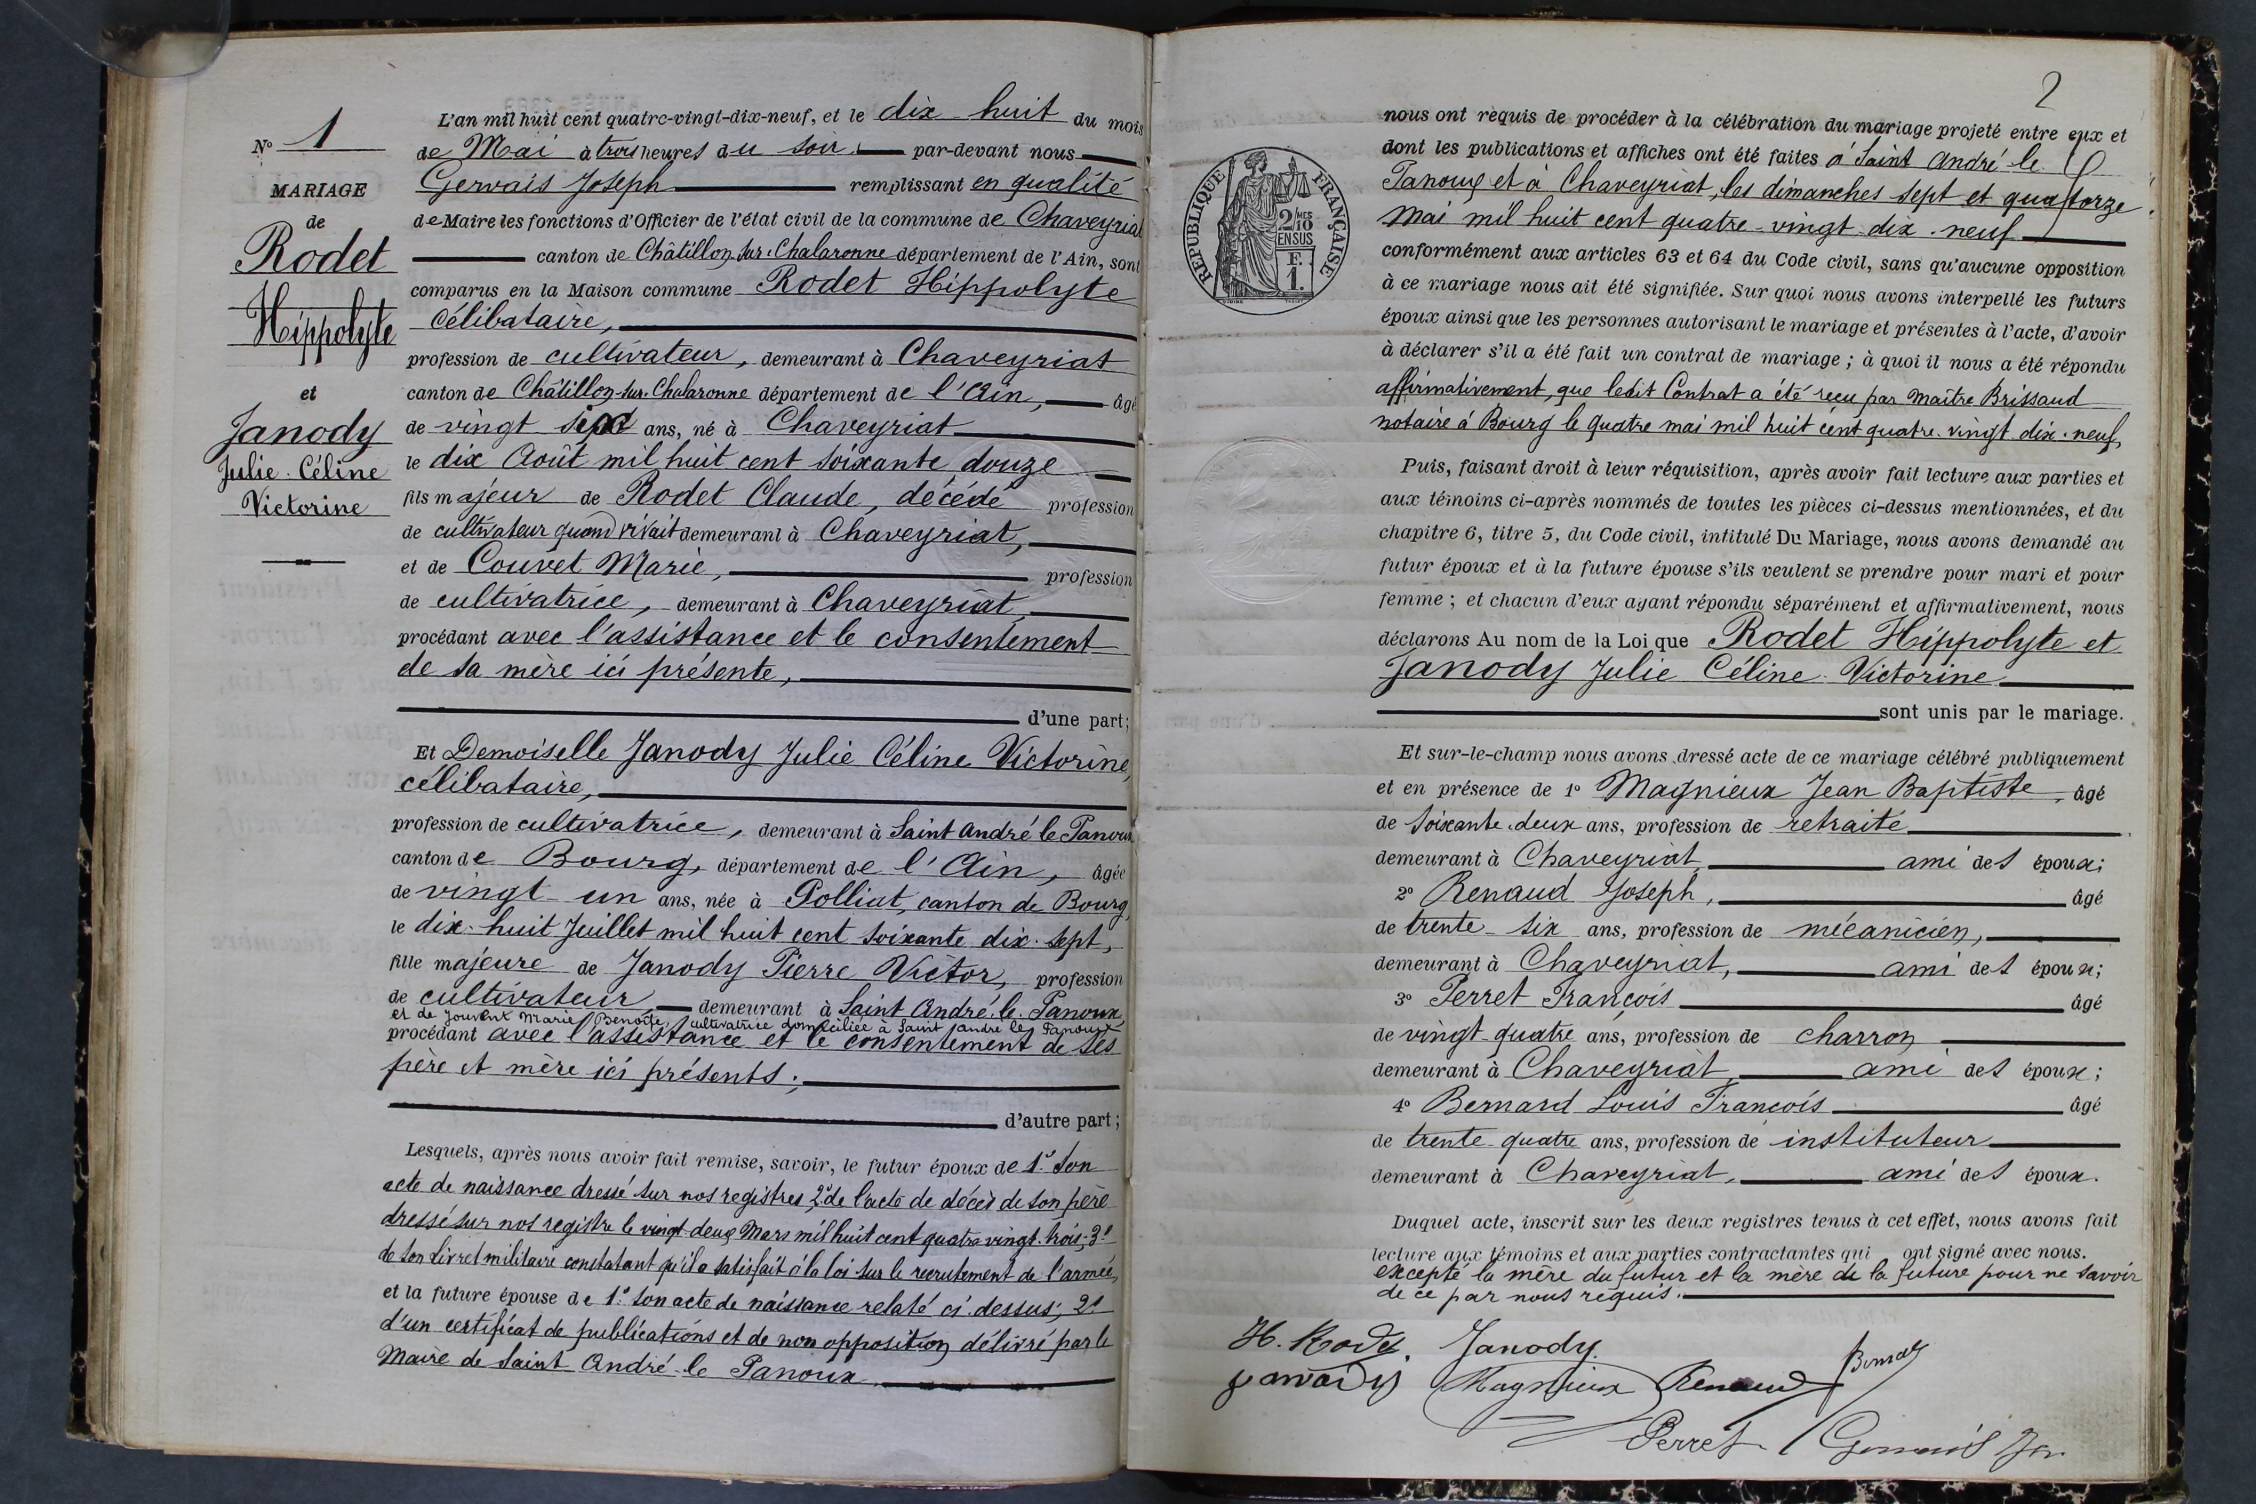 N° 1
MARIAGE
de
Rodet
Hippolyte
et
Janody
Julie Céline
Victorine
L'an mil huit cent quatre-vingt-dix-neuf, et le dix huit du mois
de Mai à trois heures du soir par-devant nous
Gervais Joseph remplissant en qualité
de Maire les fonctions d'Officier de l'état civil de la commune de Chaveyriat
canton de Châtillon-sur-Chalaronne département de l'Ain, sont
comparus en la Maison commune Rodet Hippolyte
célibataire,
profession de cultivateur, demeurant à Chaveyriat
canton de Châtillon-sur-Chalaronne département de l'Ain, âgé
de vingt ans, né à Chaveyriat
le dix Août mil huit cent soixante douze
fils majeur de Rodet Claude, décédé profession
de cultivateur quand vivait demeurant à Chaveyriat,
et de Couvet Marie, profession
de cultivatrice, demeurant à Chaveyriat,
procédant avec l'assistance et le consentement
de sa mère ici présente,
d'une part;
Et Demoiselle Janody Julie Céline Victorine,
célibataire,
profession de cultivatrice, demeurant à Saint André le Panoux
canton de Bourg, département de l'Ain, âgée
de vingt-un ans, née à Polliat, canton de Bourg,
le dix-huit Juillet mil huit cent soixante dix-sept,
fille majeure de Janody Pierre Victor, profession
de cultivateur demeurant à Saint André-le-Panoux
et de Jouvent Marie Benoîte, cultivatrice domiciliée à Saint André les Panoux
procédant avec l'assistance et le consentement de ses
père et mère ici présents;
d'autre part;
Lesquels, après nous avoir fait remise, savoir, le futur époux de 1° son
acte de naissance dressé sur nos registres, 2° de l'acte de décès de son père
dressé sur nos registre le vingt-deux Mars mil huit cent quatre vingt-trois; 3°
de son Livret militaire constatant qu'il a satisfait à la loi sur le recrutement de l'armée,
et la future épouse de 1° son acte de naissance relaté ci-dessus; 2°
d'un certificat de publications et de non opposition délivré par le
Maire de Saint André-le Panoux
2
RÉPUBLIQUE FRANÇAISE
2/10 MES
EN SUS
F.
1.
nous ont requis de procéder à la célébration du mariage projeté entre eux et
dont les publications et affiches ont été faites à Saint André-le
Panoux et à Chaveyriat, les dimanches sept et quatorze
Mai mil huit cent quatre-vingt-dix-neuf
conformément aux articles 63 et 64 du Code civil, sans qu'aucune opposition
à ce mariage nous ait été signifiée. Sur quoi nous avons interpellé les futurs
époux ainsi que les personnes autorisant le mariage et présentes à l'acte, d'avoir
à déclarer s'il a été fait un contrat de mariage; à quoi il nous a été répondu
affirmativement, que ledit Contrat a été reçu par Maître Brissaud
notaire à Bourg le quatre mai mil huit cent quatre-vingt-dix-neuf,
Puis, faisant droit à leur réquisition, après avoir fait lecture aux parties et
aux témoins ci-après nommés de toutes les pièces ci-dessus mentionnées, et du
chapitre 6, titre 5, du Code civil, intitulé Du Mariage, nous avons demandé au
futur époux et à la future épouse s'ils veulent se prendre pour mari et pour
femme; et chacun d'eux ayant répondu séparément et affirmativement, nous
déclarons Au nom de la Loi que Rodet Hippolyte et
Janody Julie Céline Victorine
sont unis par le mariage.
Et sur-le-champ nous avons dressé acte de ce mariage célébré publiquement
et en présence de 1° Magnieux Jean Baptiste, âgé
de soixante-deux ans, profession de retraité
demeurant à Chaveyriat, ami des époux;
2° Renaud Joseph, âgé
de trente-six ans, profession de mécanicien,
demeurant à Chaveyriat, ami des époux;
3° Perret François âgé
de vingt-quatre ans, profession de charron
demeurant à Chaveyriat ami des époux;
4° Bernard Louis François âgé
de trente-quatre ans, profession de instituteur
demeurant à Chaveyriat, ami des époux.
Duquel acte, inscrit sur les deux registres tenus à cet effet, nous avons fait
lecture aux témoins et aux parties contractantes qui ont signé avec nous.
excepté la mère du futur et la mère de la future pour ne savoir
de ce par nous requis.
H. Rodet. Janody.
Janody Magnieux Renaud Bernard
Perret Gervais Jos.